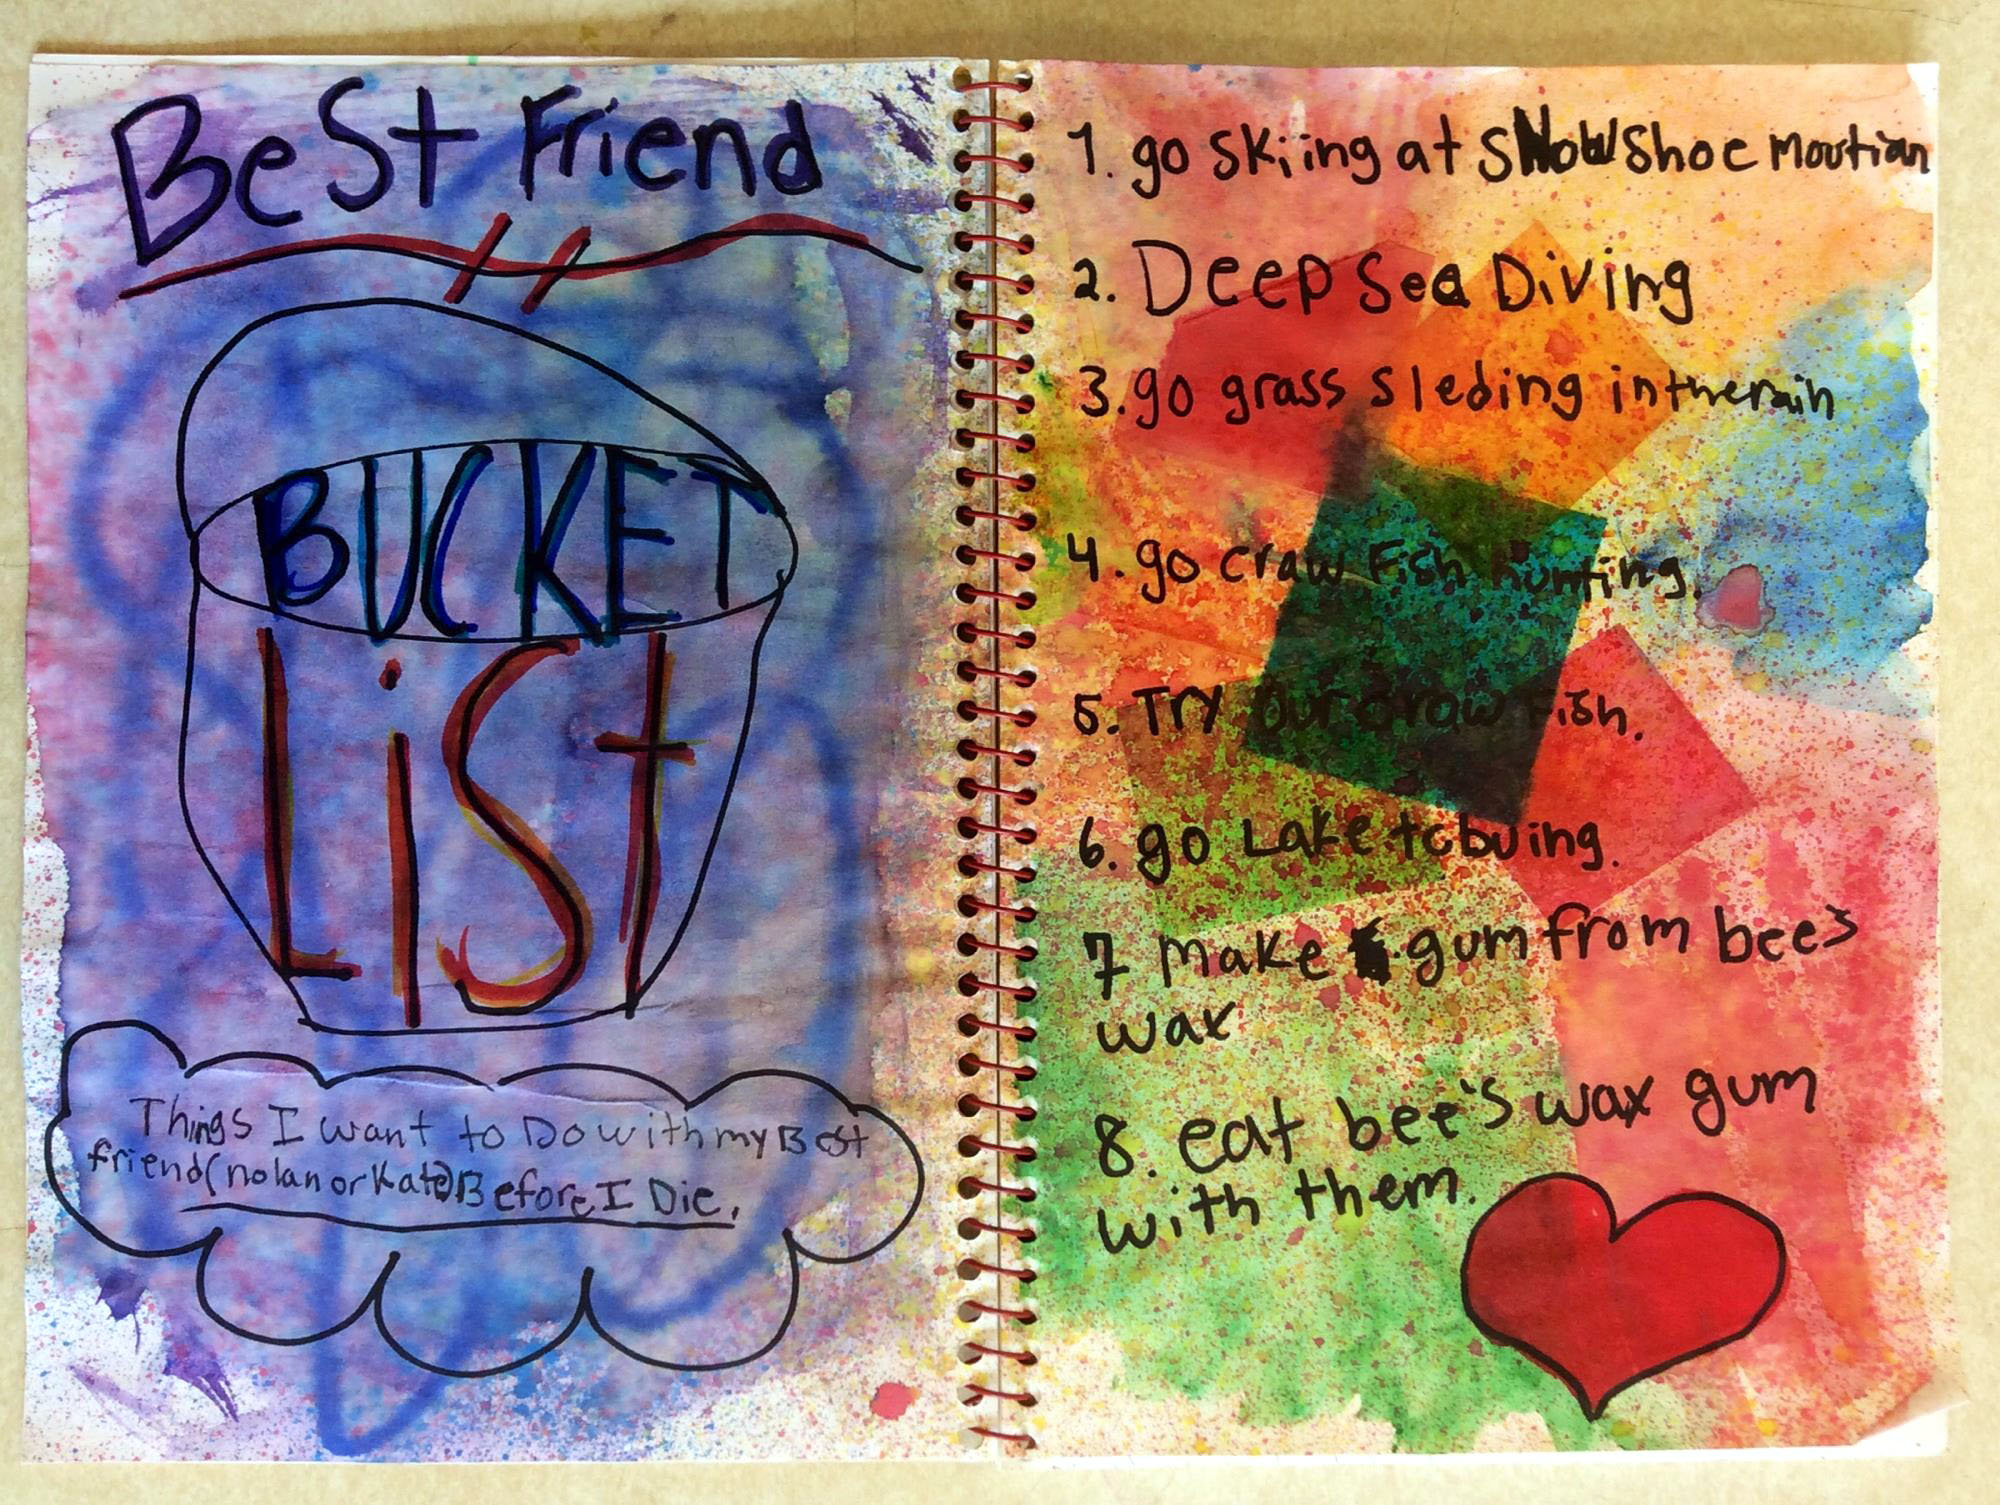 Best Friend
BUCKET
List
Things I want to Do with my Best
friend(nolan or Kate) Before I Die.
1. go skiing at sNowshoe moutian
2. Deep Sea Diving
3. go grass sleding in the rain
4. go craw Fish hunting.
5. Try our craw Fish.
6. go Lake tobuing.
7 make gum from bee's
wax
8. eat bee's wax gum
with them.